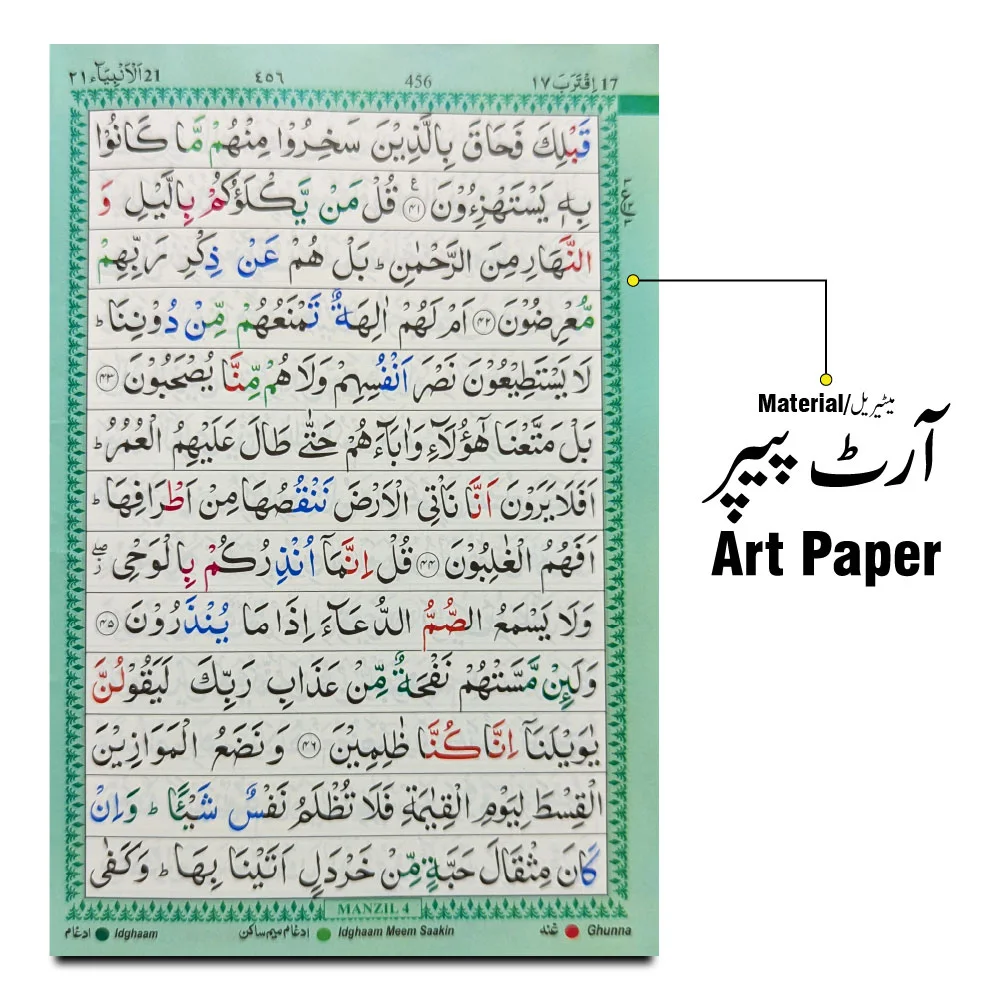 21 اَلْاَنْۢبِیَآء ٢١ ٤٥٦ 456 17 اِقْتَرَبَ ١٧
قَبْلِكَ فَحَاقَ بِالَّذِیْنَ سَخِرُوْا مِنْهُمْ مَّا كَانُوْا
بِهٖ یَسْتَهْزِءُوْنَ ﴿۴۱﴾ ع قُلْ مَنْ یَّكْلَؤُكُمْ بِالَّیْلِ وَ
النَّهَارِ مِنَ الرَّحْمٰنِ ؕ بَلْ هُمْ عَنْ ذِكْرِ رَبِّهِمْ
مُّعْرِضُوْنَ ﴿۴۲﴾ اَمْ لَهُمْ اٰلِهَةٌ تَمْنَعُهُمْ مِّنْ دُوْنِنَا ؕ
لَا یَسْتَطِیْعُوْنَ نَصْرَ اَنْفُسِهِمْ وَلَا هُمْ مِّنَّا یُصْحَبُوْنَ ﴿۴۳﴾
بَلْ مَتَّعْنَا هٰۤؤُلَآءِ وَاٰبَآءَهُمْ حَتّٰی طَالَ عَلَیْهِمُ الْعُمُرُ ؕ
اَفَلَا یَرَوْنَ اَنَّا نَاْتِی الْاَرْضَ نَنْقُصُهَا مِنْ اَطْرَافِهَا ؕ
اَفَهُمُ الْغٰلِبُوْنَ ﴿۴۴﴾ قُلْ اِنَّمَاۤ اُنْذِرُكُمْ بِالْوَحْیِ ۖ ز
وَلَا یَسْمَعُ الصُّمُّ الدُّعَآءَ اِذَا مَا یُنْذَرُوْنَ ﴿۴۵﴾
وَلَىِٕنْ مَّسَّتْهُمْ نَفْحَةٌ مِّنْ عَذَابِ رَبِّكَ لَیَقُوْلُنَّ
یٰوَیْلَنَاۤ اِنَّا كُنَّا ظٰلِمِیْنَ ﴿۴۶﴾ وَنَضَعُ الْمَوَازِیْنَ
الْقِسْطَ لِیَوْمِ الْقِیٰمَةِ فَلَا تُظْلَمُ نَفْسٌ شَیْـًٔا ؕ وَاِنْ
كَانَ مِثْقَالَ حَبَّةٍ مِّنْ خَرْدَلٍ اَتَیْنَا بِهَا ؕ وَكَفٰی
MANZIL 4
ادغام Idghaam ادغام میم ساکن Idghaam Meem Saakin غنہ Ghunna
Material/میٹیریل
آرٹ پیپر
Art Paper